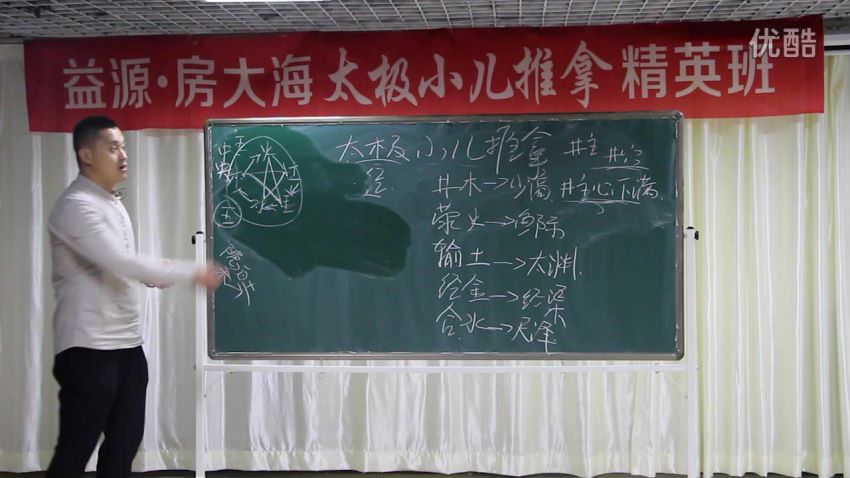 优酷
益源·房大海太极小儿推拿精英班
太极小儿推拿
井主
井木→少商 井主心下满
荥火→鱼际
输土→太渊
经金→经渠
合水→尺泽
中央
土
火
木
金
水